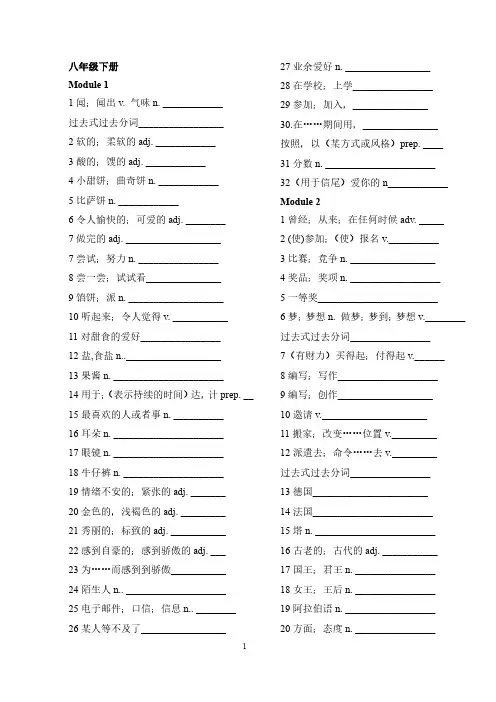 八年级下册
Module 1
1 闻；闻出 v. 气味 n. ____________
过去式过去分词_________________
2 软的；柔软的 adj. ____________
3 酸的；馊的 adj. ____________
4 小甜饼；曲奇饼 n. ____________
5 比萨饼 n. ____________
6 令人愉快的；可爱的 adj. ________
7 做完的 adj. ___________________
7 尝试；努力 n. ________________
8 尝一尝；试试看_______________
9 馅饼；派 n. ___________________
10 听起来；令人觉得 v. ___________
11 对甜食的爱好________________
12 盐,食盐 n..___________________
13 果酱 n. ______________________
14 用于；（表示持续的时间）达，计 prep. __
15 最喜欢的人或者事 n. __________
16 耳朵 n. ______________________
17 眼镜 n. ______________________
18 牛仔裤 n. ____________________
19 情绪不安的；紧张的 adj. _______
20 金色的，浅褐色的 adj. _________
21 秀丽的；标致的 adj. ___________
22 感到自豪的；感到骄傲的 adj. ___
23 为……而感到到骄傲___________
24 陌生人 n.. ____________________
25 电子邮件；口信；信息 n.. ________
26 某人等不及了_________________
27 业余爱好 n. _________________
28 在学校；上学________________
29 参加；加入，_______________
30.在……期间用，_______________
按照，以（某方式或风格）prep. ____
31 分数 n. ______________________
32（用于信尾）爱你的 n____________
Module 2
1 曾经；从来；在任何时候 adv. _____
2 (使)参加；（使）报名 v.__________
3 比赛；竞争 n. _________________
4 奖品；奖项 n. __________________
5 一等奖________________________
6 梦；梦想 n. 做梦；梦到；梦想 v.________
过去式过去分词________________
7（有财力）买得起；付得起 v.______
8 编写；写作____________________
9 编写；创作____________________
10 邀请 v._____________________
11 搬家；改变……位置 v._________
12 派遣去；命令……去 v._________
过去式过去分词________________
13 德国_______________________
14 法国________________________
15 塔 n. ________________________
16 古老的；古代的 adj. ___________
17 国王；君王 n. ________________
18 女王；王后 n. ________________
19 阿拉伯语 n. __________________
20 方面；态度 n. ________________
1